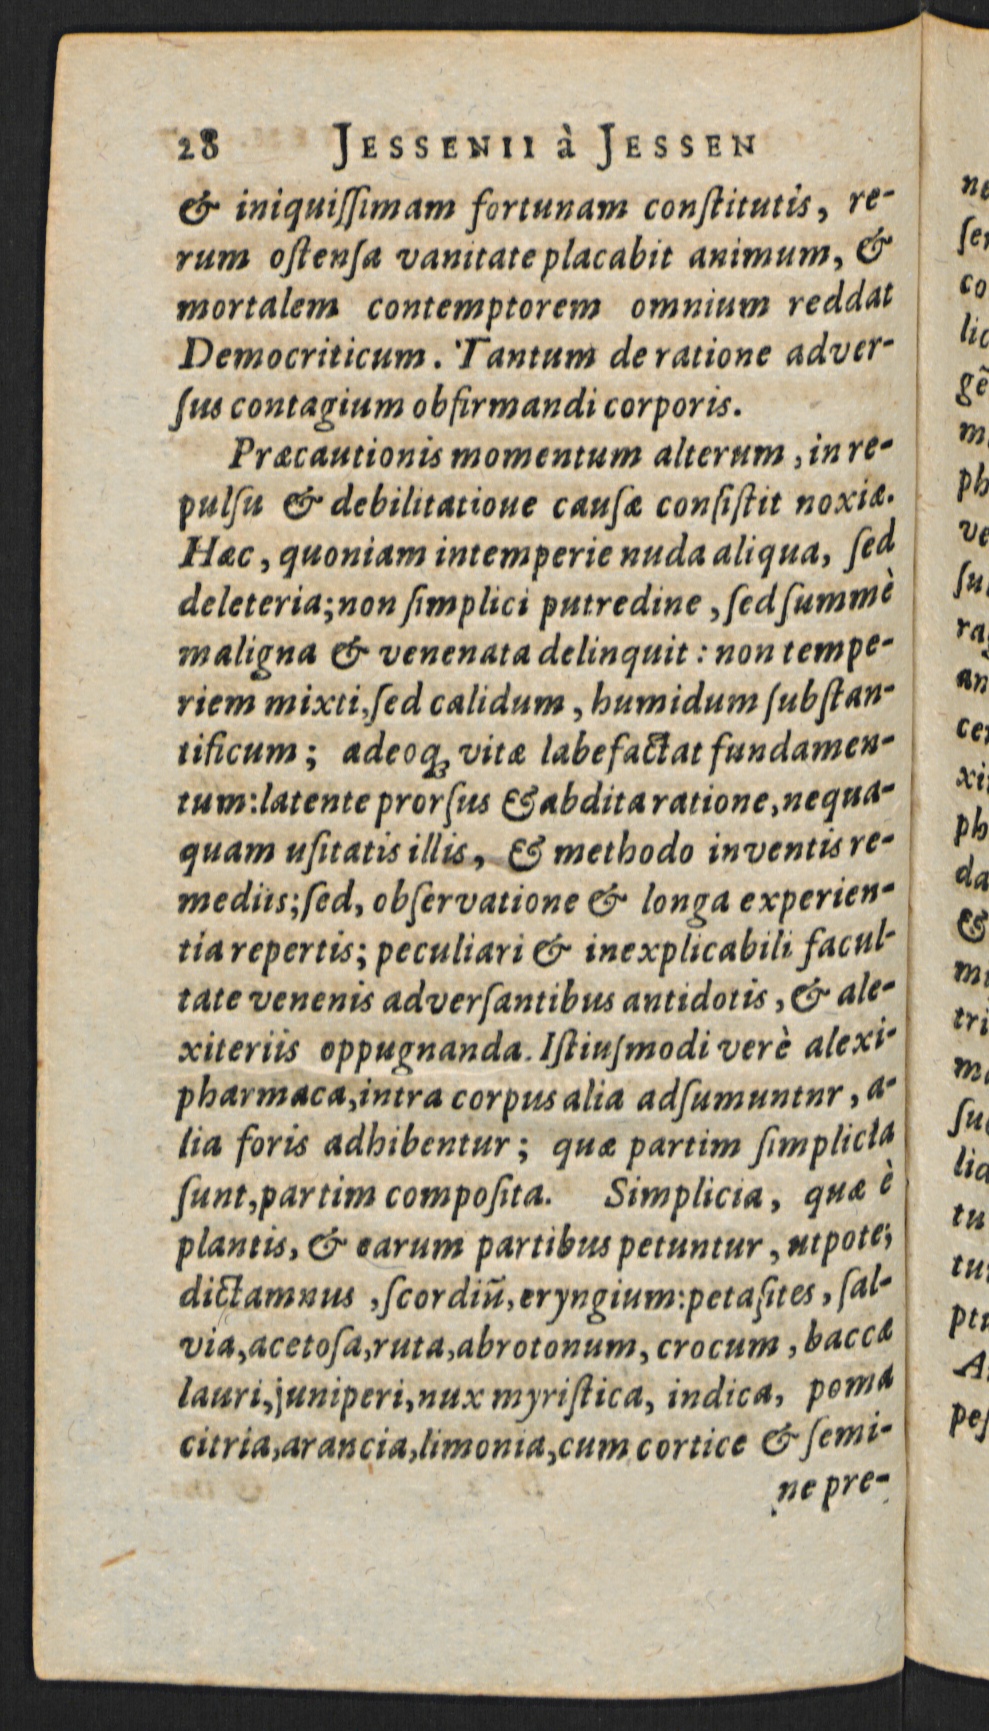 28 JESSENII à JESSEN
& iniquiſſimam fortunam conſtitutis, re-
rum oſtenſa vanitate placabit animum, &
mortalem contemptorem omnium reddat
Democriticum. Tantum de ratione adver-
ſus contagium obfirmandi corporis.
Præcautionis momentum alterum, in re-
pulſu & debilitatioue cauſæ conſiſtit noxiæ.
Hæc, quoniam intemperie nuda aliqua, ſed
deleteria; non ſimplici putredine, ſed ſummè
maligna & venenata delinquit: non tempe-
riem mixti, ſed calidum, humidum ſubſtan-
tificum; adeoq́; vitæ labefactat fundamen-
tum: latente prorſus & abdita ratione, nequa-
quam uſitatis illis, & methodo inventis re-
mediis; ſed, obſervatione & longa experien-
tia repertis; peculiari & inexplicabili facul-
tate venenis adverſantibus antidotis, & ale-
xiteriis oppugnanda. Iſtiuſmodi verè alexi-
pharmaca, intra corpus alia adſumuntnr, a-
lia foris adhibentur; quæ partim ſimplicia
ſunt, partim compoſita. Simplicia, quæ è
plantis, & earum partibus petuntur, utpote;
dictamnus, ſcordiũ, eryngium: petaſites, ſal-
via, acetoſa, ruta, abrotonum, crocum, baccæ
lauri, juniperi, nux myriſtica, indica, poma
citria, arancia, limonia, cum cortice & ſemi-
ne pre-
ne
ſer
co
lic
gẽ
m
ph
ve
ſu
ra
an
cer
xi
ph
da
&
mi
tri
ma
ſu
lia
tu
tu
ptu
A
peſ